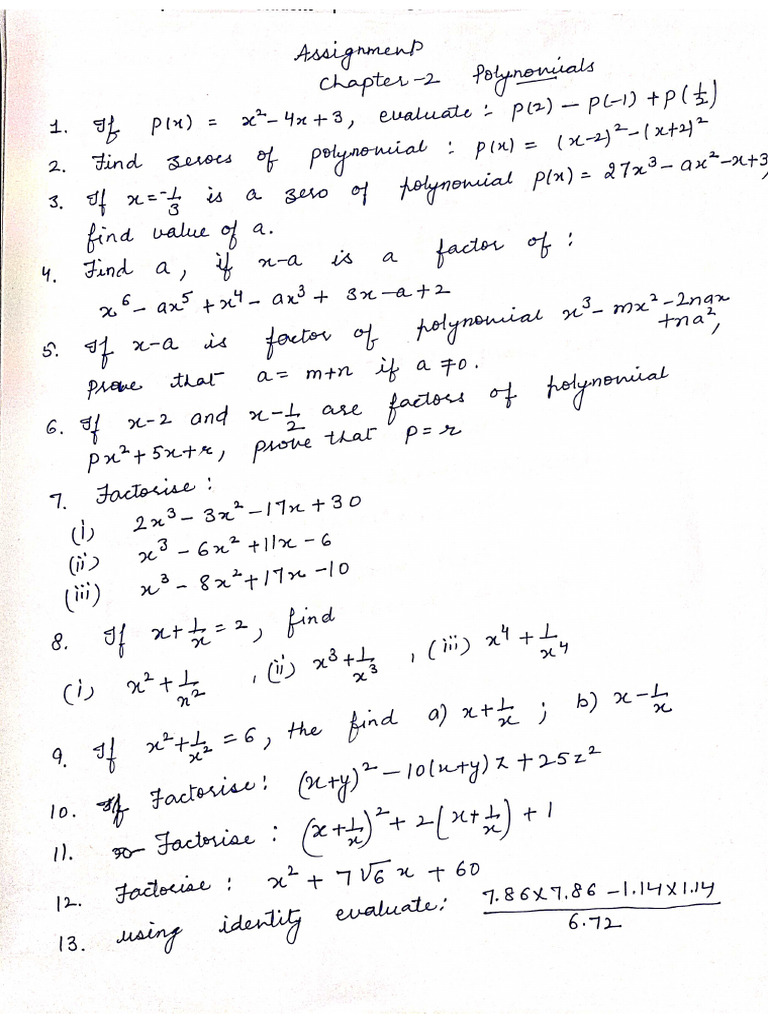 Assignment
Chapter-2 Polynomials
1. If p(x) = x² - 4x + 3, evaluate : p(2) - p(-1) + p(1/2)
2. Find zeroes of polynomial : p(x) = (x-2)² - (x+2)²
3. If x = -1/3 is a zero of polynomial p(x) = 27x³ - ax² - x + 3,
find value of a.
4. Find a, if x-a is a factor of :
x⁶ - ax⁵ + x⁴ - ax³ + 3x - a + 2
5. If x-a is factor of polynomial x³ - mx² - 2nax
+ na²,
prove that a = m+n if a ≠ 0.
6. If x-2 and x-1/2 are factors of polynomial
px² + 5x + r, prove that p = r
7. Factorise :
(i) 2x³ - 3x² - 17x + 30
(ii) x³ - 6x² + 11x - 6
(iii) x³ - 8x² + 17x - 10
8. If x + 1/x = 2, find
(i) x² + 1/x² , (ii) x³ + 1/x³ , (iii) x⁴ + 1/x⁴
9. If x² + 1/x² = 6, the find a) x + 1/x ; b) x - 1/x
10. Factorise : (x+y)² - 10(x+y)z + 25z²
11. Factorise : (x + 1/x)² + 2(x + 1/x) + 1
12. Factorise : x² + 7√6 x + 60
13. using identity evaluate : 7.86 X 7.86 - 1.14 X 1.14 / 6.72